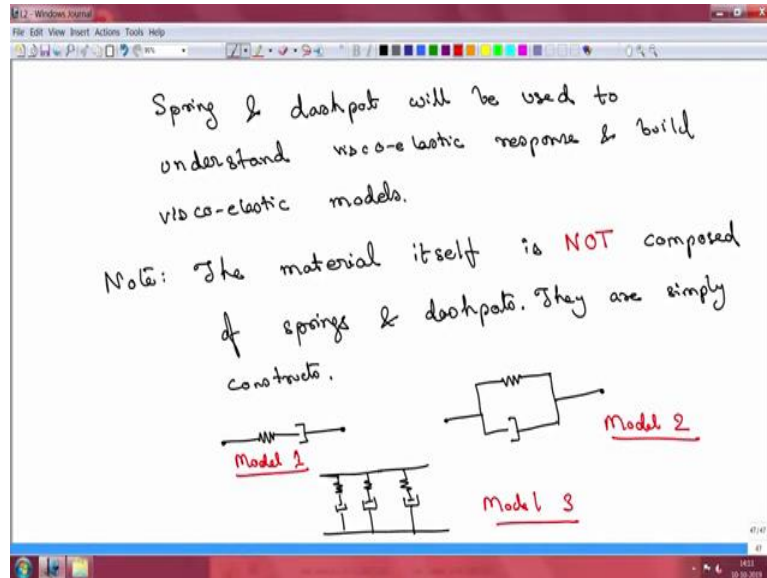 L2 - Windows Journal
File Edit View Insert Actions Tools Help
Spring & dashpot will be used to
understand visco-elastic response & build
visco-elastic models.
Note: The material itself is NOT composed
of springs & dashpots. They are simply
constructs.
Model 1
Model 2
Model 3
47/47
47
14:11
10-10-2019